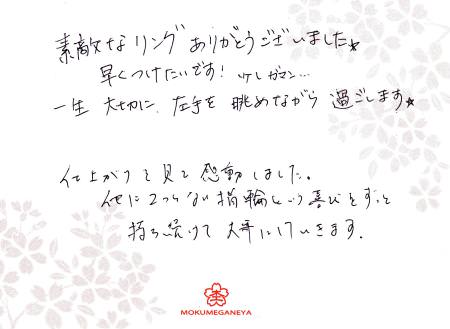 素敵なリング ありがとうございました★
早くつけたいです! 少しガマン…
一生 大切に 左手を 眺めながら 過ごします★
仕上がりを見て感動しました。
他に2つとない指輪という喜びをずっと
持ち続けて 大事にしていきます。
MOKUMEGANEYA